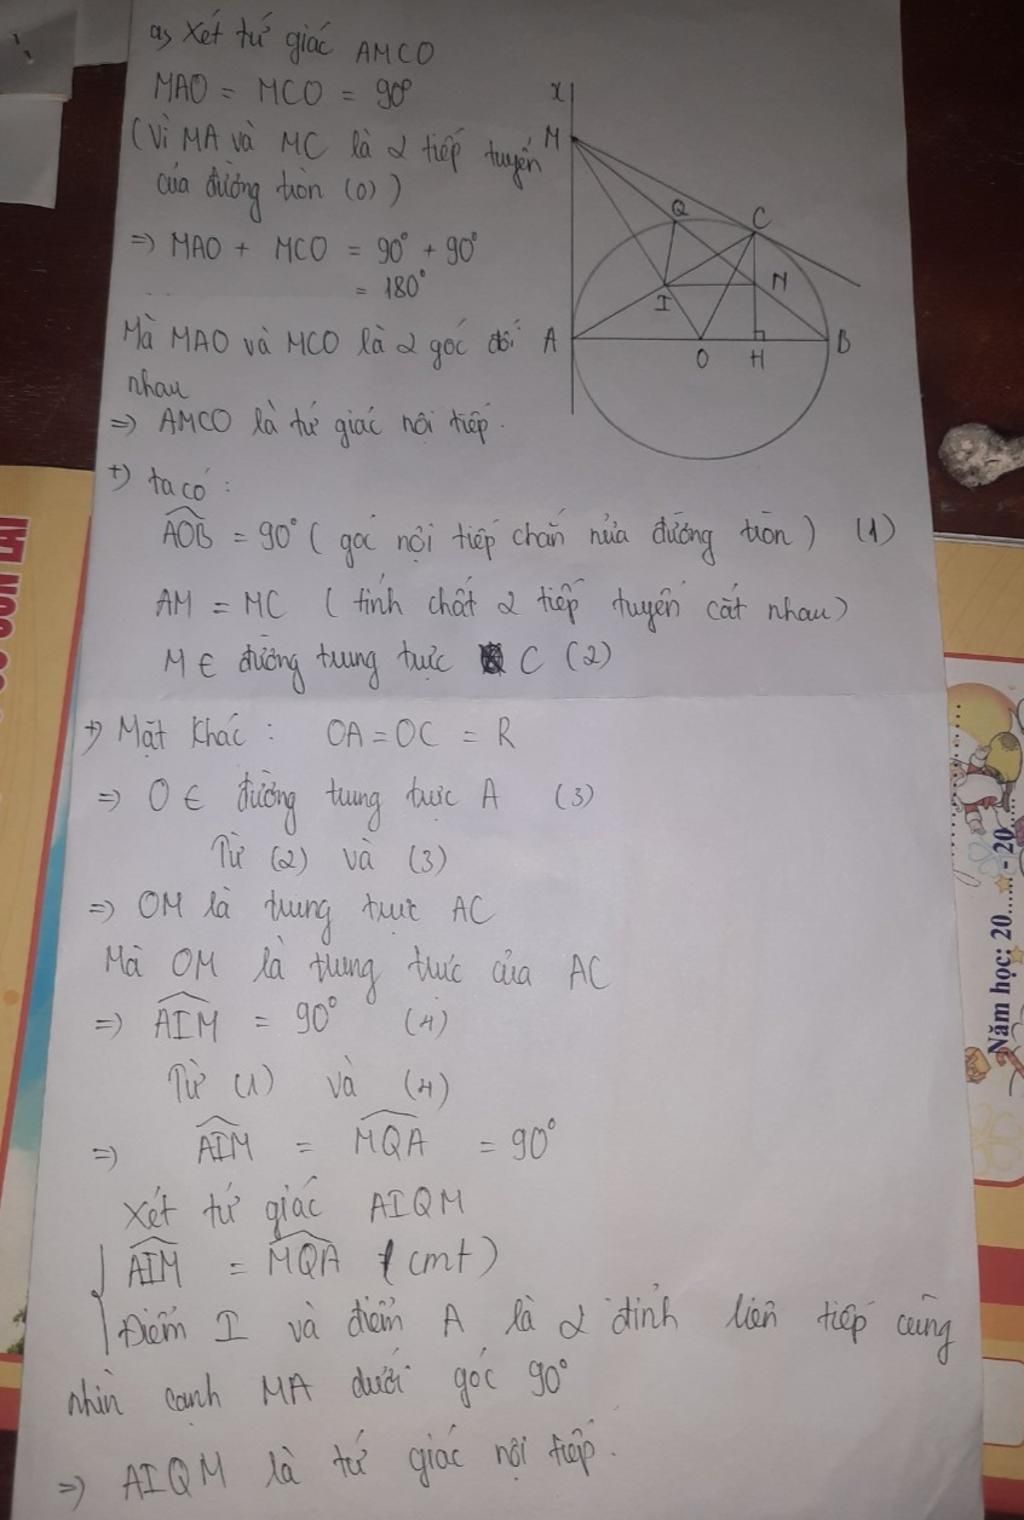 a, Xét tứ giác AMCO
MAO = MCO = 90°
(Vì MA và MC là 2 tiếp tuyến
của đường tròn (O))
=> MAO + MCO = 90° + 90°
= 180°
Mà MAO và MCO là 2 góc đối
nhau
=> AMCO là tứ giác nội tiếp.
x
M
Q
C
I
N
A
O
H
B
+) ta có :
AOB = 90° ( góc nội tiếp chắn nửa đường tròn ) (1)
AM = MC ( tính chất 2 tiếp tuyến cắt nhau)
M ∈ đường trung trực C (2)
+) Mặt khác : OA = OC = R
=> O ∈ đường trung trực A (3)
Từ (2) và (3)
=> OM là trung trực AC
Mà OM là trung trực của AC
=> AIM = 90° (4)
Từ (1) và (4)
=> AIM = MQA = 90°
Xét tứ giác AIQM
AIM = MQA (cmt)
Điểm I và điểm A là 2 đỉnh liên tiếp cùng
nhìn cạnh MA dưới góc 90°
=> AIQM là tứ giác nội tiếp.
Năm học: 20...... - 20.....